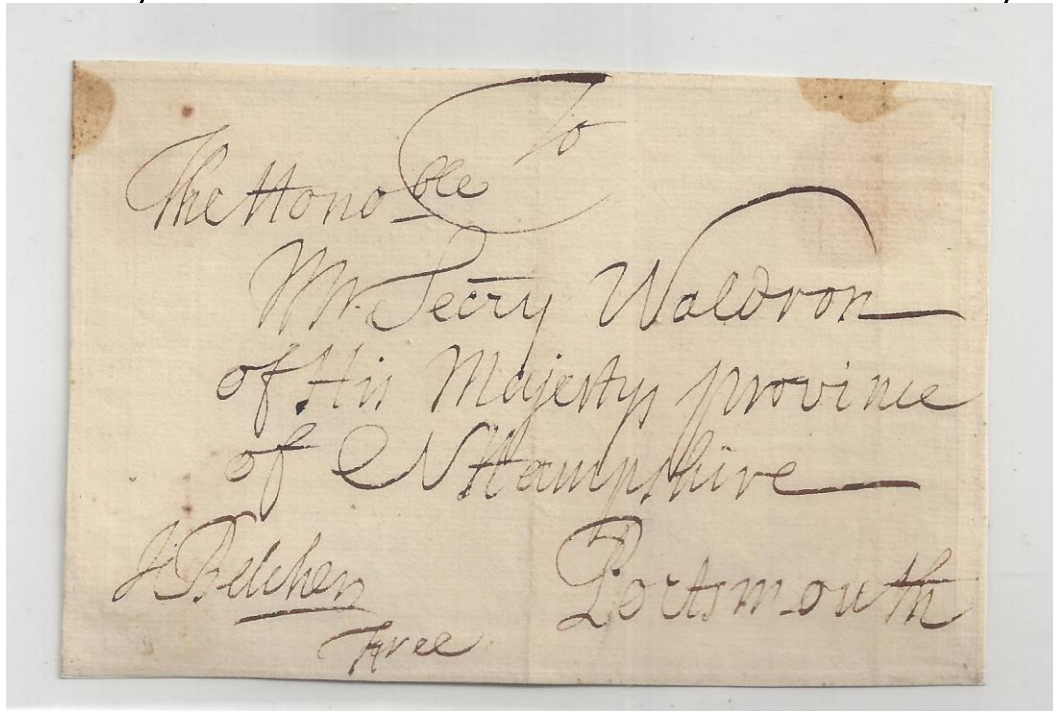 To
The Honoble
Mr. Secry Waldron
of His Majestys province
of N Hampshire
J Belcher
Free
Portsmouth